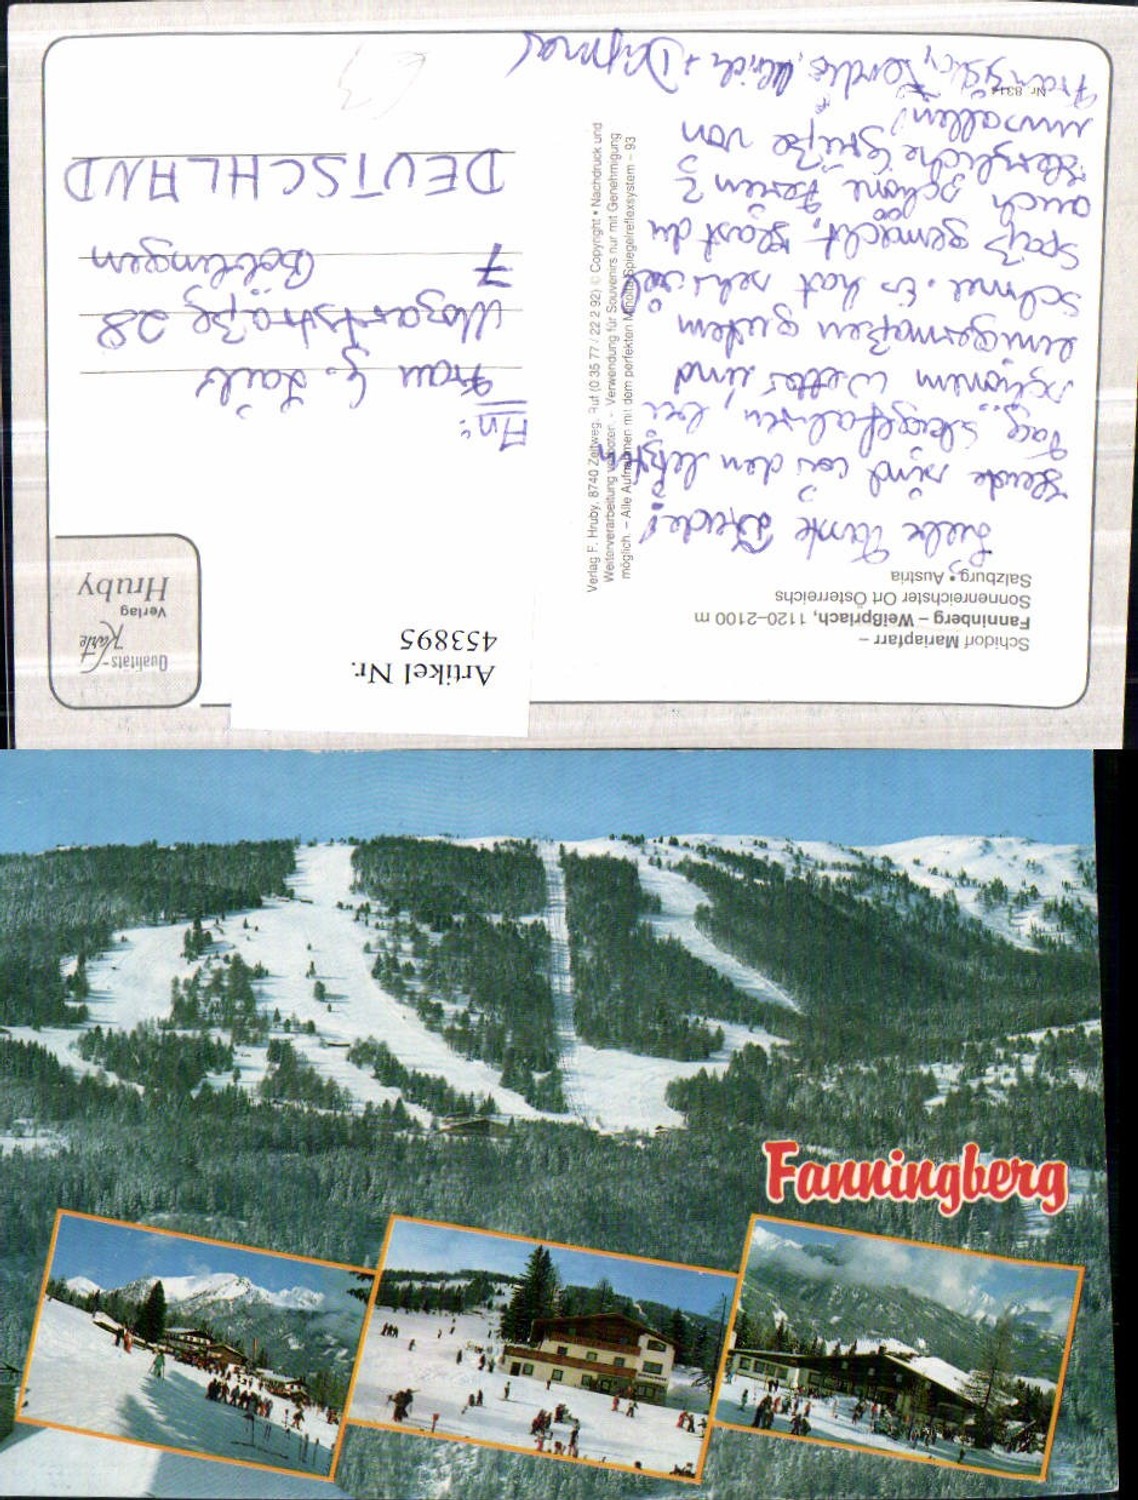 Schidorf Mariapfarr –
Fanninberg – Weißpriach, 1120–2100 m
Sonnenreichster Ort Österreichs
Salzburg • Austria
Liebe Tante
Heute sind wir den letzten
Tag skigefahren, bei
schönem Wetter und
einigermaßen gutem
Schnee. Es hat sehr viel
Spaß gemacht. Hast du
auch schöne Ferien?
Herzliche Grüße von
uns allen!
Ulrich + Dagmar
Nr. 831
Verlag F. Hruby, 8740 Zeltweg, Ruf (0 35 77 / 22 2 92) © Copyright • Nachdruck und
Weiterverarbeitung verboten. - Verwendung für Souvenirs nur mit Genehmigung
möglich. – Alle Aufnahmen mit dem perfekten Minolta Spiegelreflexsystem – 93
Artikel Nr.
453895
Qualitäts-
Karte
Verlag
Hruby
An:
Frau G.
Mozartstraße 28
7
DEUTSCHLAND
Fanningberg